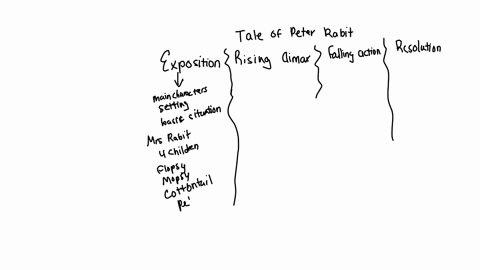 Tale of Peter Rabit
Exposition Rising Aimar Falling action Resolution
main characters
setting
basic situation
Mrs Rabit
4 Children
Flopsy
Mopsy
Cottontail
Pe